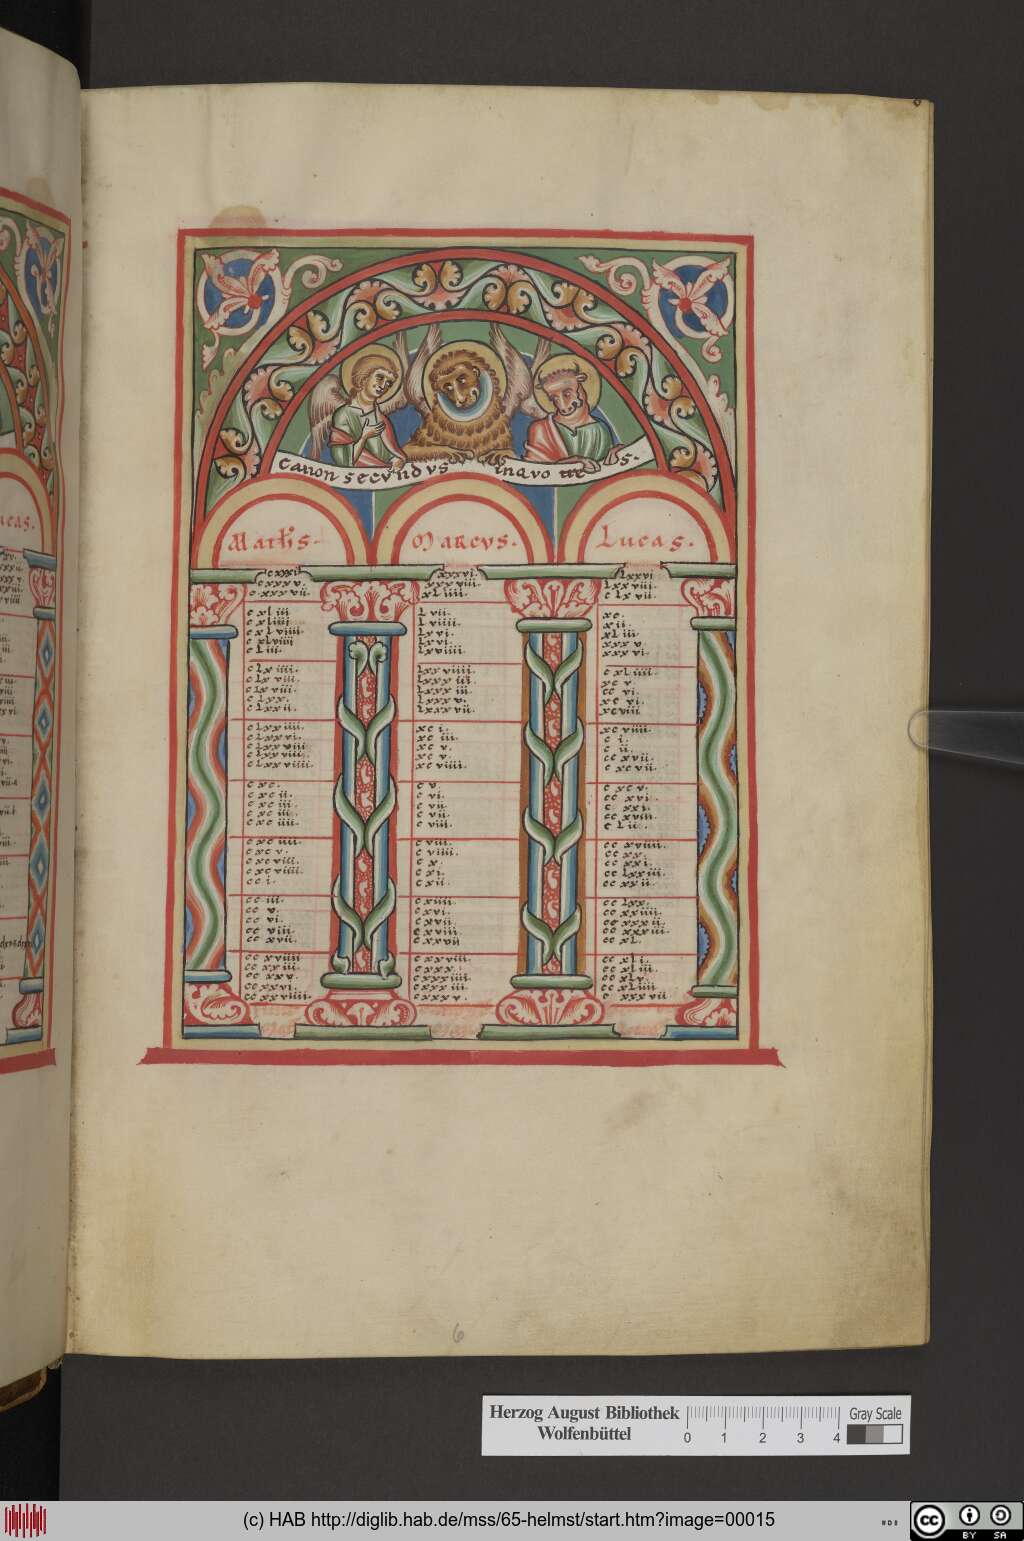 canon secundus in quo tres.
Math's.
Marcus.
Lucas.
cxxxv. xxxviii. lxxviii.
c xxx vii. xl iiii. c lx vii.
c xl iii. l vii. xc.
c xl iiii. l viiii. x ii.
c xl viiii. lx vi. xl iii.
c xlviii lxvi. xxx v.
c l iii. lxviiii. xxx vi.
c lx iiii. lxx viiii. c xl iiii.
c lx viii. lxxx iii. xc v.
c lx viii. lxxx iii. cc vi.
c lxx. lxxx v. xc vi.
c lxx ii. lxxx vii. xcviii
c lxx iiii. xc i. xc viiii.
c lxx vi. xc iii. c i.
c lxx viii xc v. c ii.
c lxx viiii. xc v. cc xvii.
c lxx viiii. xc viiii. c xc vii.
c xc. c v. c xc v.
c xc ii. c vi. cc xvi.
c xc iii. c vii. c xxi.
c xc iii. c vii. cc xviii.
c xc iiii. c viii. c l ii.
c xc iiii. c viii. cc xviiii.
c xc v. c viiii. cc xx.
c xc viii. c x. cc xxi.
c xc viiii. c xi. cc lxxiii.
cc i. c xii. cc xx ii.
cc iii. c xiiii. cc lxx.
cc v. c xvi. cc xxiiii.
cc vi. c xvii. cc xxx ii.
cc viii. c xviii. cc xxxiii.
cc xvii. c xxvii cc xl.
cc xviiii c xxviii. cc xl i.
cc xx iii. c xxx. cc xl iii.
cc xx v. c xxxiiii. cc xl v.
cc xxvi. c xxxiiii. cc xl iiii
cc xx viiii. c xxx v. c xxx vii
6
Herzog August Bibliothek
Wolfenbüttel
0 1 2 3 4
Gray Scale
(c) HAB http://diglib.hab.de/mss/65-helmst/start.htm?image=00015
cc BY SA